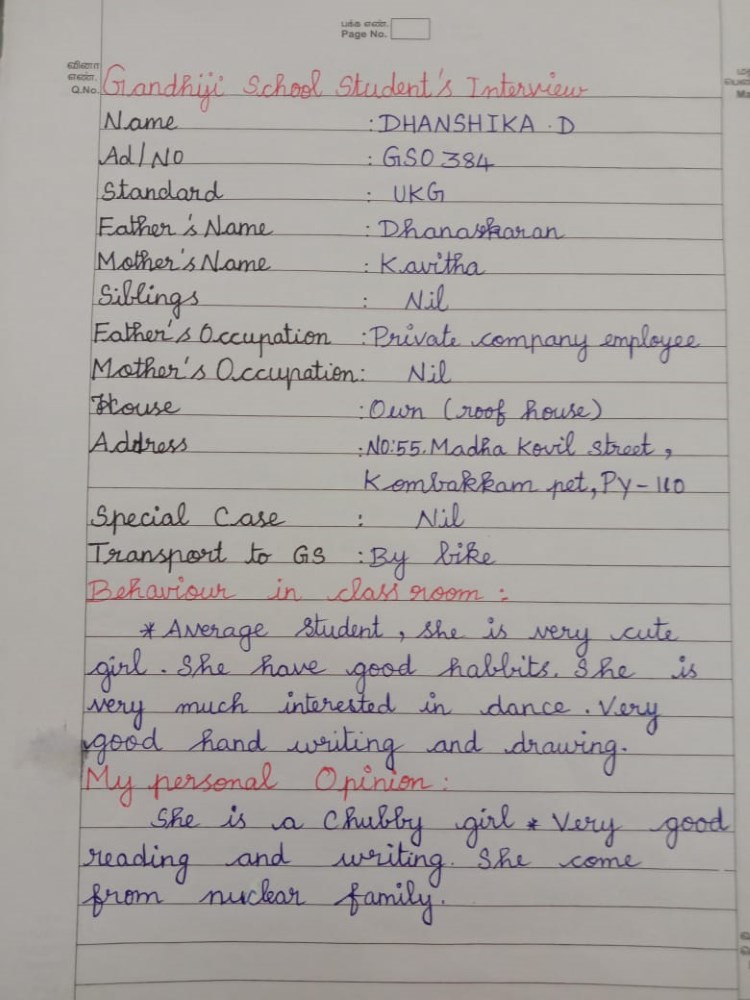 பக்க எண்.
Page No.
வினா
எண்.
Q.No.
Gandhiji School Student's Interview
Name : DHANSHIKA . D
Ad/No : GSO 384
Standard : UKG
Father's Name : Dhanaskaran
Mother's Name : Kavitha
Siblings : Nil
Father's Occupation : Private company employee
Mother's Occupation : Nil
House : Own (roof house)
Address : NO:55. Madha Kovil street,
Kombakkam pet, PY-110
Special Case : Nil
Transport to GS : By bike
Behaviour in class room :
* Average Student, she is very cute
girl. She have good habbits. She is
very much interested in dance. Very
good hand writing and drawing.
My personal Opinion :
She is a chubby girl * Very good
reading and writing. She come
from nuclear family.